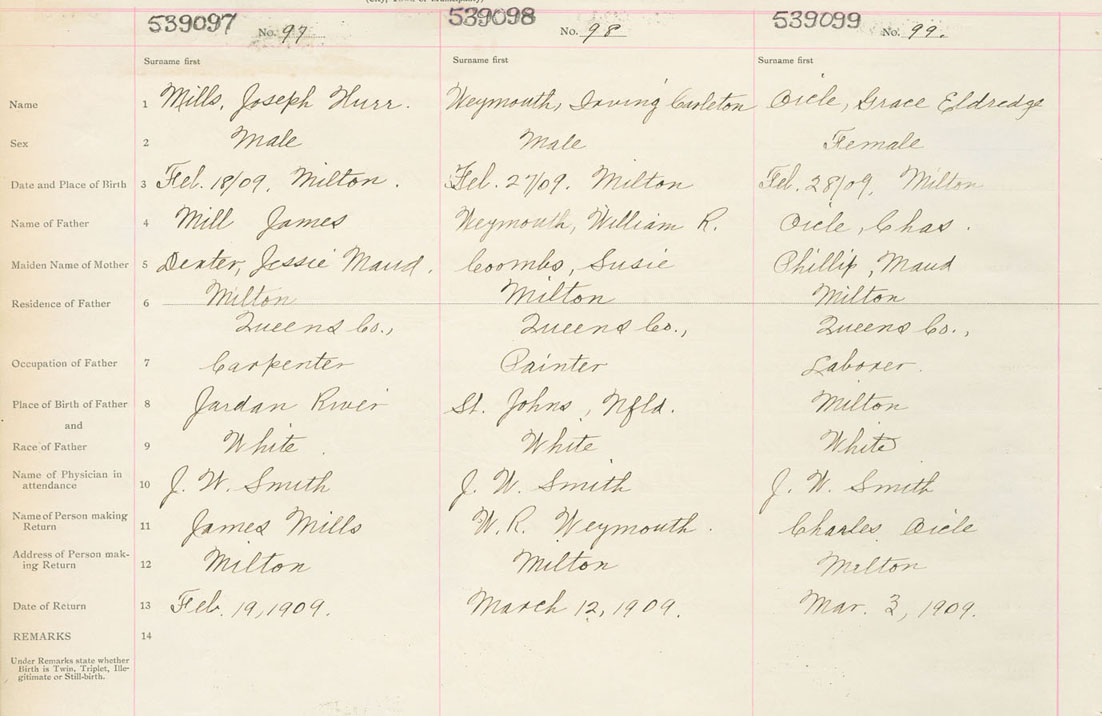 (City, Town or Municipality)
539097 No. 97
539098 No. 98
539099 No. 99.
Surname first Surname first Surname first
Name 1 Mills, Joseph Hurr. Weymouth, Irving Carleton Oicle, Grace Eldredge
Sex 2 Male Male Female
Date and Place of Birth 3 Feb. 18/09, Milton. Feb. 27/09. Milton Feb. 28/09, Milton
Name of Father 4 Mill James Weymouth, William R. Oicle, Chas.
Maiden Name of Mother 5 Dexter, Jessie Maud. Coombs, Susie Phillip, Maud
Residence of Father 6 Milton Milton Milton
Queens Co., Queens Co., Queens Co.,
Occupation of Father 7 Carpenter Painter Laborer.
Place of Birth of Father 8 Jordan River St. Johns, Nfld. Milton
and
Race of Father 9 White White White
Name of Physician in
attendance 10 J. W. Smith J. W. Smith J. W. Smith
Name of Person making
Return 11 James Mills W. R. Weymouth. Charles Oicle
Address of Person mak-
ing Return 12 Milton Milton Milton
Date of Return 13 Feb. 19, 1909. March 12, 1909. Mar. 3, 1909.
REMARKS 14
Under Remarks state whether
Birth is Twin, Triplet, Ille-
gitimate or Still-birth.